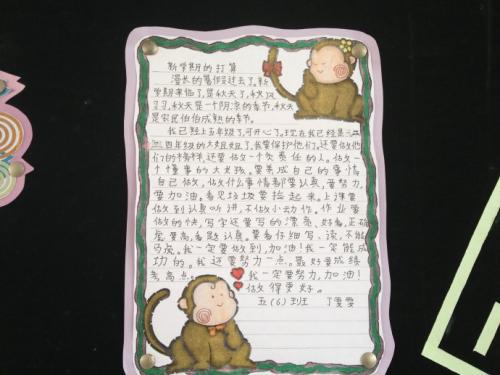 新学期的打算
漫长的暑假过去了。新
学期来临了。是秋天了,秋风
习习。秋天是一个阴凉的季节。秋天
是农民伯伯成熟的季节。
我已经上五年级了,可开心了。现在我已经是一二
三四年级的大姐姐了。我要保护他们,还要做他
们的榜样,还要做一个负责任的人。做一
个懂事的大女孩。要养成自己的事情
自己做,做什么事情都要认真,要努力,
要加油。看见垃圾要捡起来。上课要
做到认真听讲,不做小动作。作业要
做的快,写字还要写的漂亮、好看,正确
度要高,看题认真。要看仔细写、读,不能
马虎。我一定要做到,加油!我一定能成
功的。我还要努力一点。最好要成绩
考高点。我一定要努力,加油!
做得更好。
五(6)班 丁雯雯